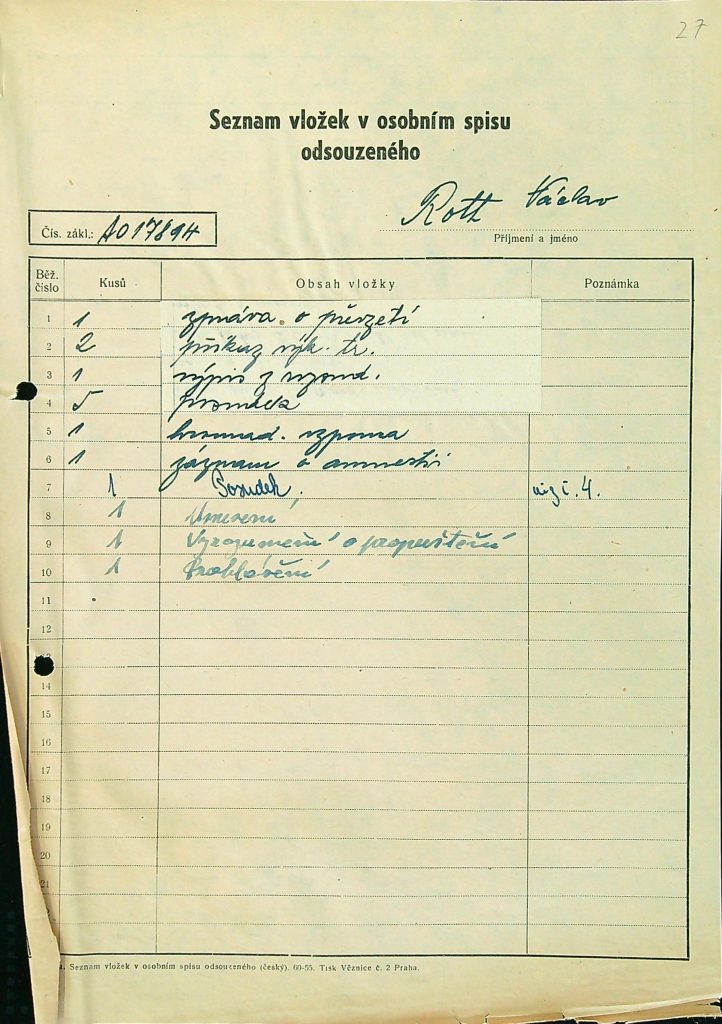 27
Seznam vložek v osobním spisu
odsouzeného
Roth Václav
Čís. zákl.: A017894
Příjmení a jméno
Běž. číslo Kusů Obsah vložky Poznámka
1 1 zpráva o převzetí
2 2 příkaz výk. tr.
3 1 výpis z
4 5
5 1 hromad. vzpoura
6 1 záznam o amnestii
7 1 Posudek. viz č. 4.
8 1 Usnesení
9 1 Vyrozumění o propuštění
10 1 Prohlášení
11
12
14
15
16
17
18
19
20
21
Seznam vložek v osobním spisu odsouzeného (český). 60-55. Tisk Věznice č. 2 Praha.